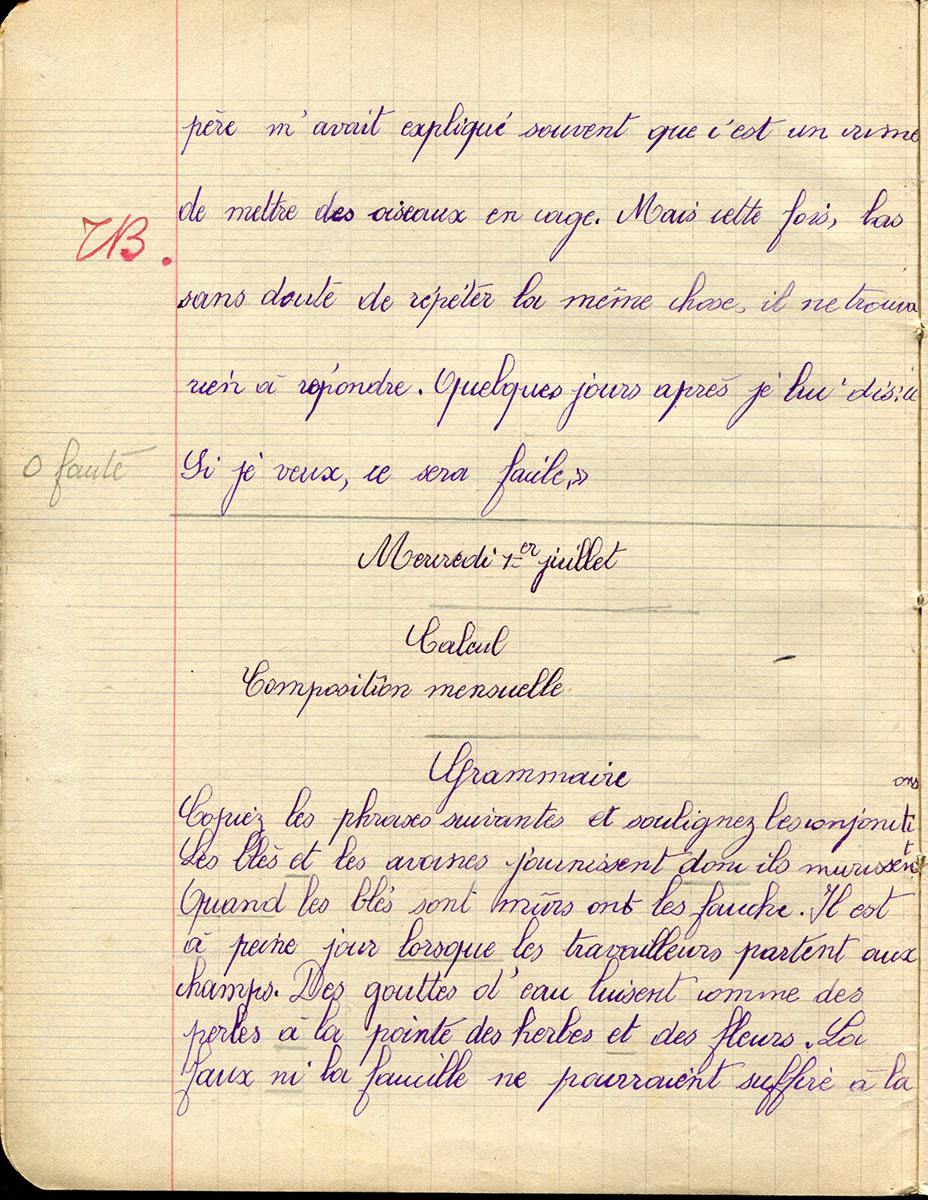 père m'avait expliqué souvent que c'est un crime
de mettre des oiseaux en cage. Mais cette fois, las
TB.
sans doute de répéter la même chose, il ne trouva
rien à répondre. Quelques jours après je lui dis: «
0 faute
Si je veux, ce sera facile.»
Mercredi 1er juillet
Calcul
Composition mensuelle
Grammaire
Copiez les phrases suivantes et soulignez les conjonctions
Les blés et les avoines jaunissent donc ils murissent
Quand les blés sont mûrs ont les fauche. Il est
à peine jour lorsque les travailleurs partent aux
champs. Des gouttes d'eau luisent comme des
perles à la pointe des herbes et des fleurs. La
faux ni la faucille ne pourraient suffire à la